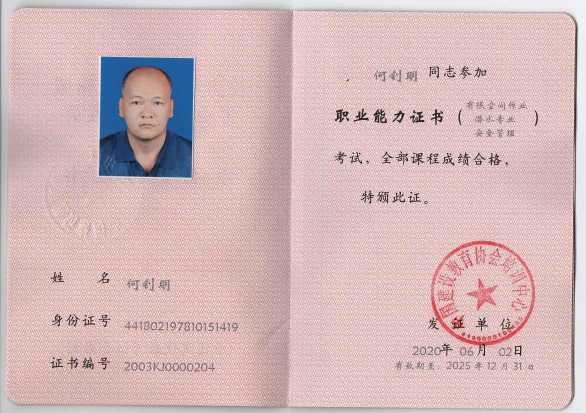 姓 名 何利明
身份证号 441802197810151419
证书编号 2003KJ0000204
何利明 同志参加
职业能力证书（有限空间作业 潜水专业 安全管理）
考试，全部课程成绩合格，
特颁此证。
建设教育协会培训中心
发证单位
2020年 06月 02日
有效期至：2025年12月31日